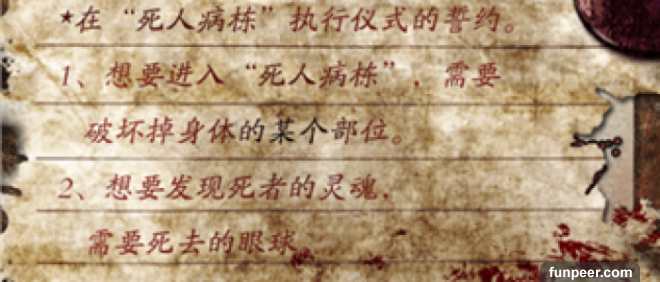 ★在“死人病栋”执行仪式的誓约。
1、想要进入“死人病栋”，需要
破坏掉身体的某个部位。
2、想要发现死者的灵魂，
需要死去的眼球
funpeer.com